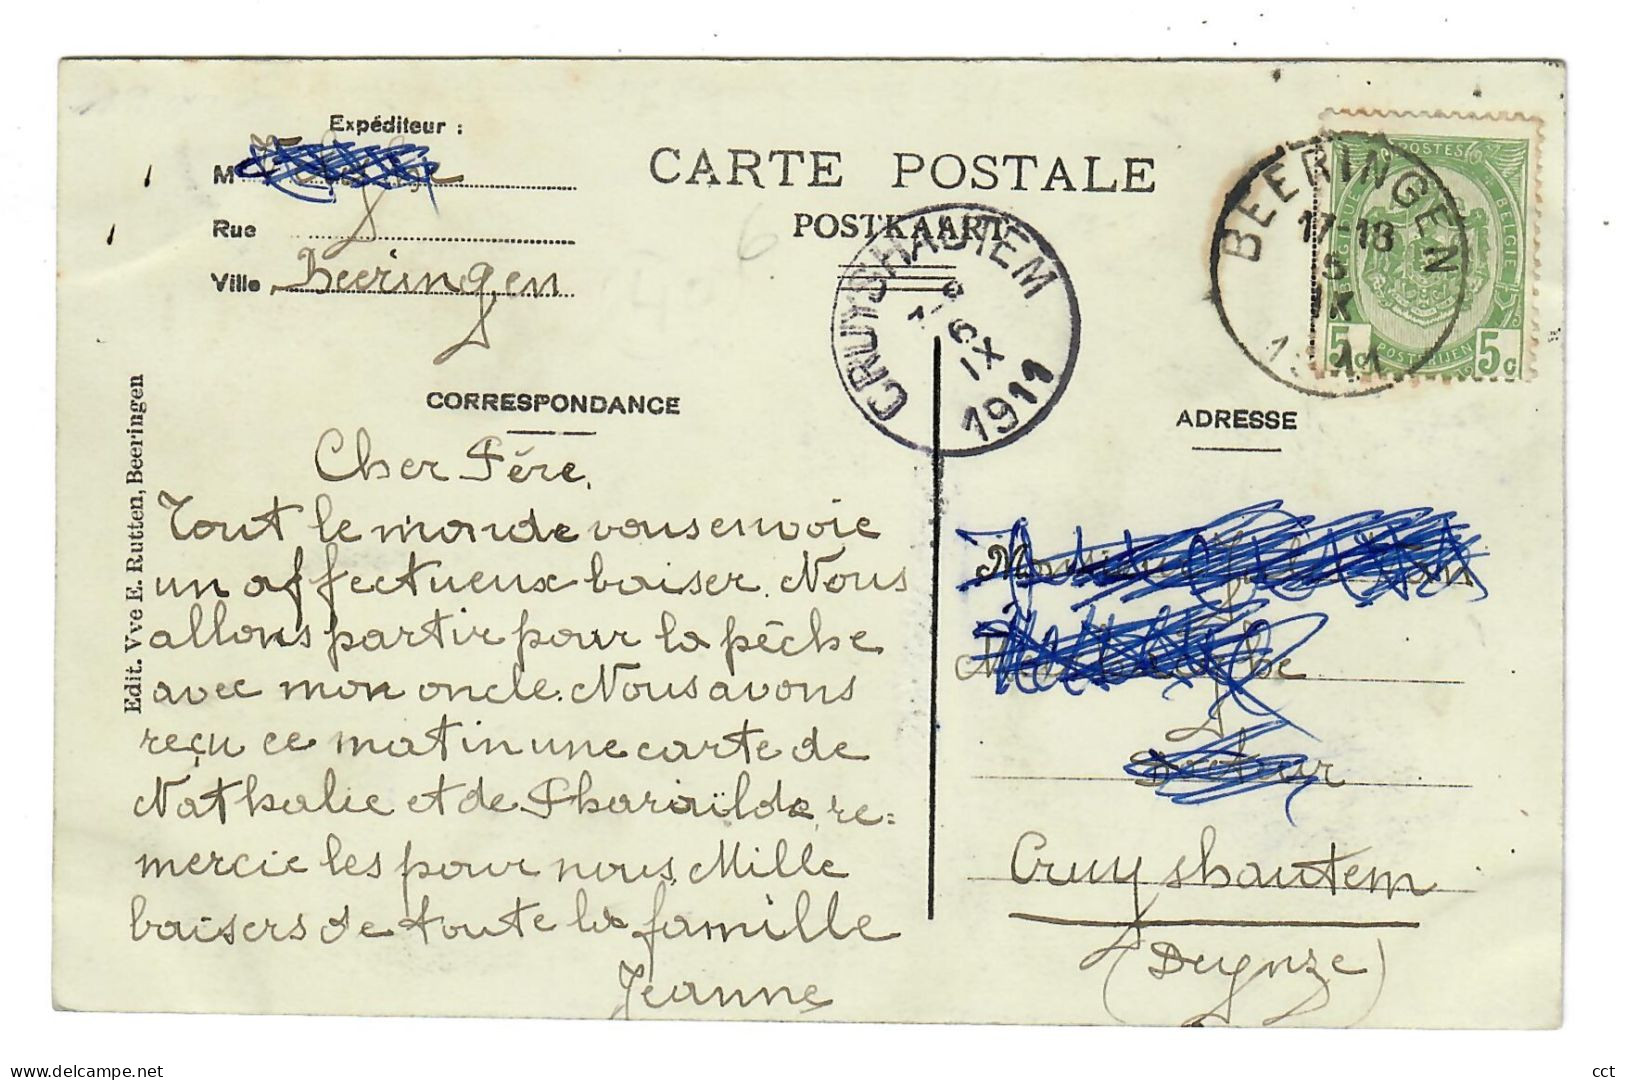 Expéditeur :
M
Rue
Ville Beeringen
CARTE POSTALE
POSTKAART
CORRESPONDANCE
ADRESSE
Edit. Vve E. Rutten, Beeringen
Cher Père,
Tout le monde vous envoie
un affectueux baiser. Nous
allons partir pour la pêche
avec mon oncle. Nous avons
reçu ce matin une carte de
Nathalie et de Pharaïlde, re=
mercie les pour nous. Mille
baisers de toute la famille
Jeanne
CRUYSHAUTEM
6
IX
1911
BEERINGEN
17-18
5
IX
1911
POSTES
BELGIQUE
BELGIË
POSTERIJEN
5c
5c
Cruyshautem
(Deynze)
delcampe.net
cct